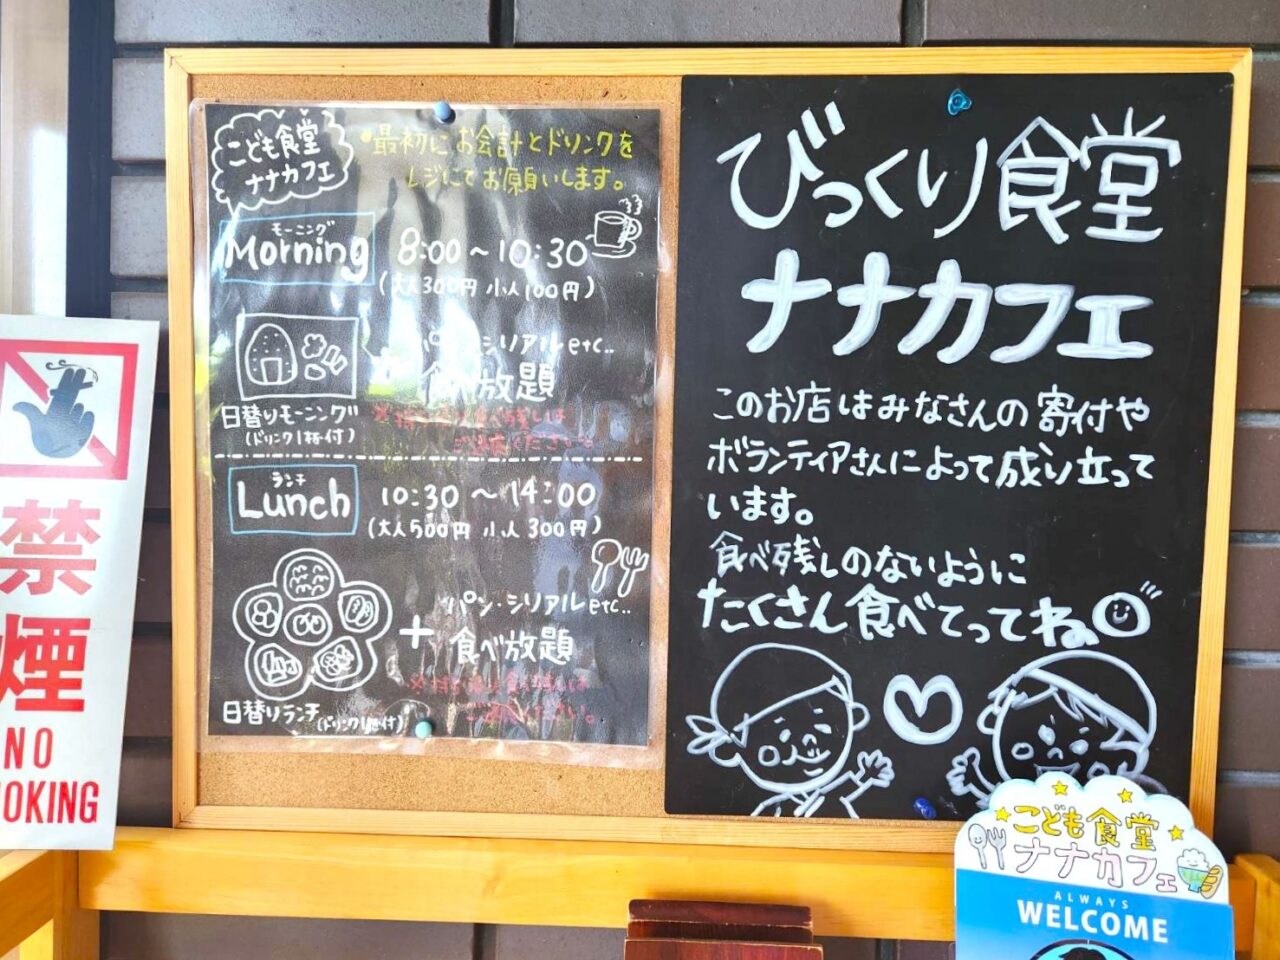 こども食堂
ナナカフェ
●最初にお会計とドリンクを
レジにてお願いします。
モーニング
Morning
8:00～10:30
(大人300円 小人100円)
パン・シリアルetc..
食べ放題
日替りモーニング
(ドリンク1杯付)
ランチ
Lunch
10:30～14:00
(大人500円 小人300円)
パン・シリアルetc..
+ 食べ放題
日替りランチ
(ドリンク1杯付)
びっくり食堂
ナナカフェ
このお店はみなさんの寄付や
ボランティアさんによって成り立って
います。
食べ残しのないように
たくさん食べてってね。
禁煙
NO
SMOKING
こども食堂
ナナカフェ
ALWAYS
WELCOME